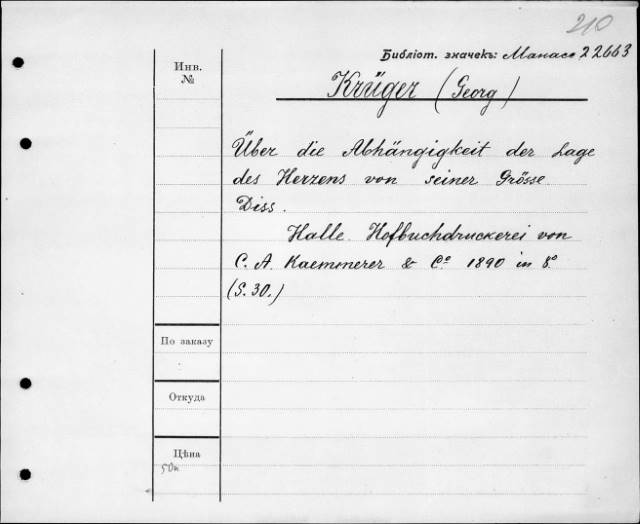 210
Библіот. значекъ: Манасе 22663
Инв.
№
Krüger (Georg)
Über die Abhängigkeit der Lage
des Herzens von seiner Grösse.
Diss.
Halle. Hofbuchdruckerei von
C. A. Kaemmerer & Cº 1890 in 8º
(S. 30.)
По заказу
Откуда
Цѣна
50к